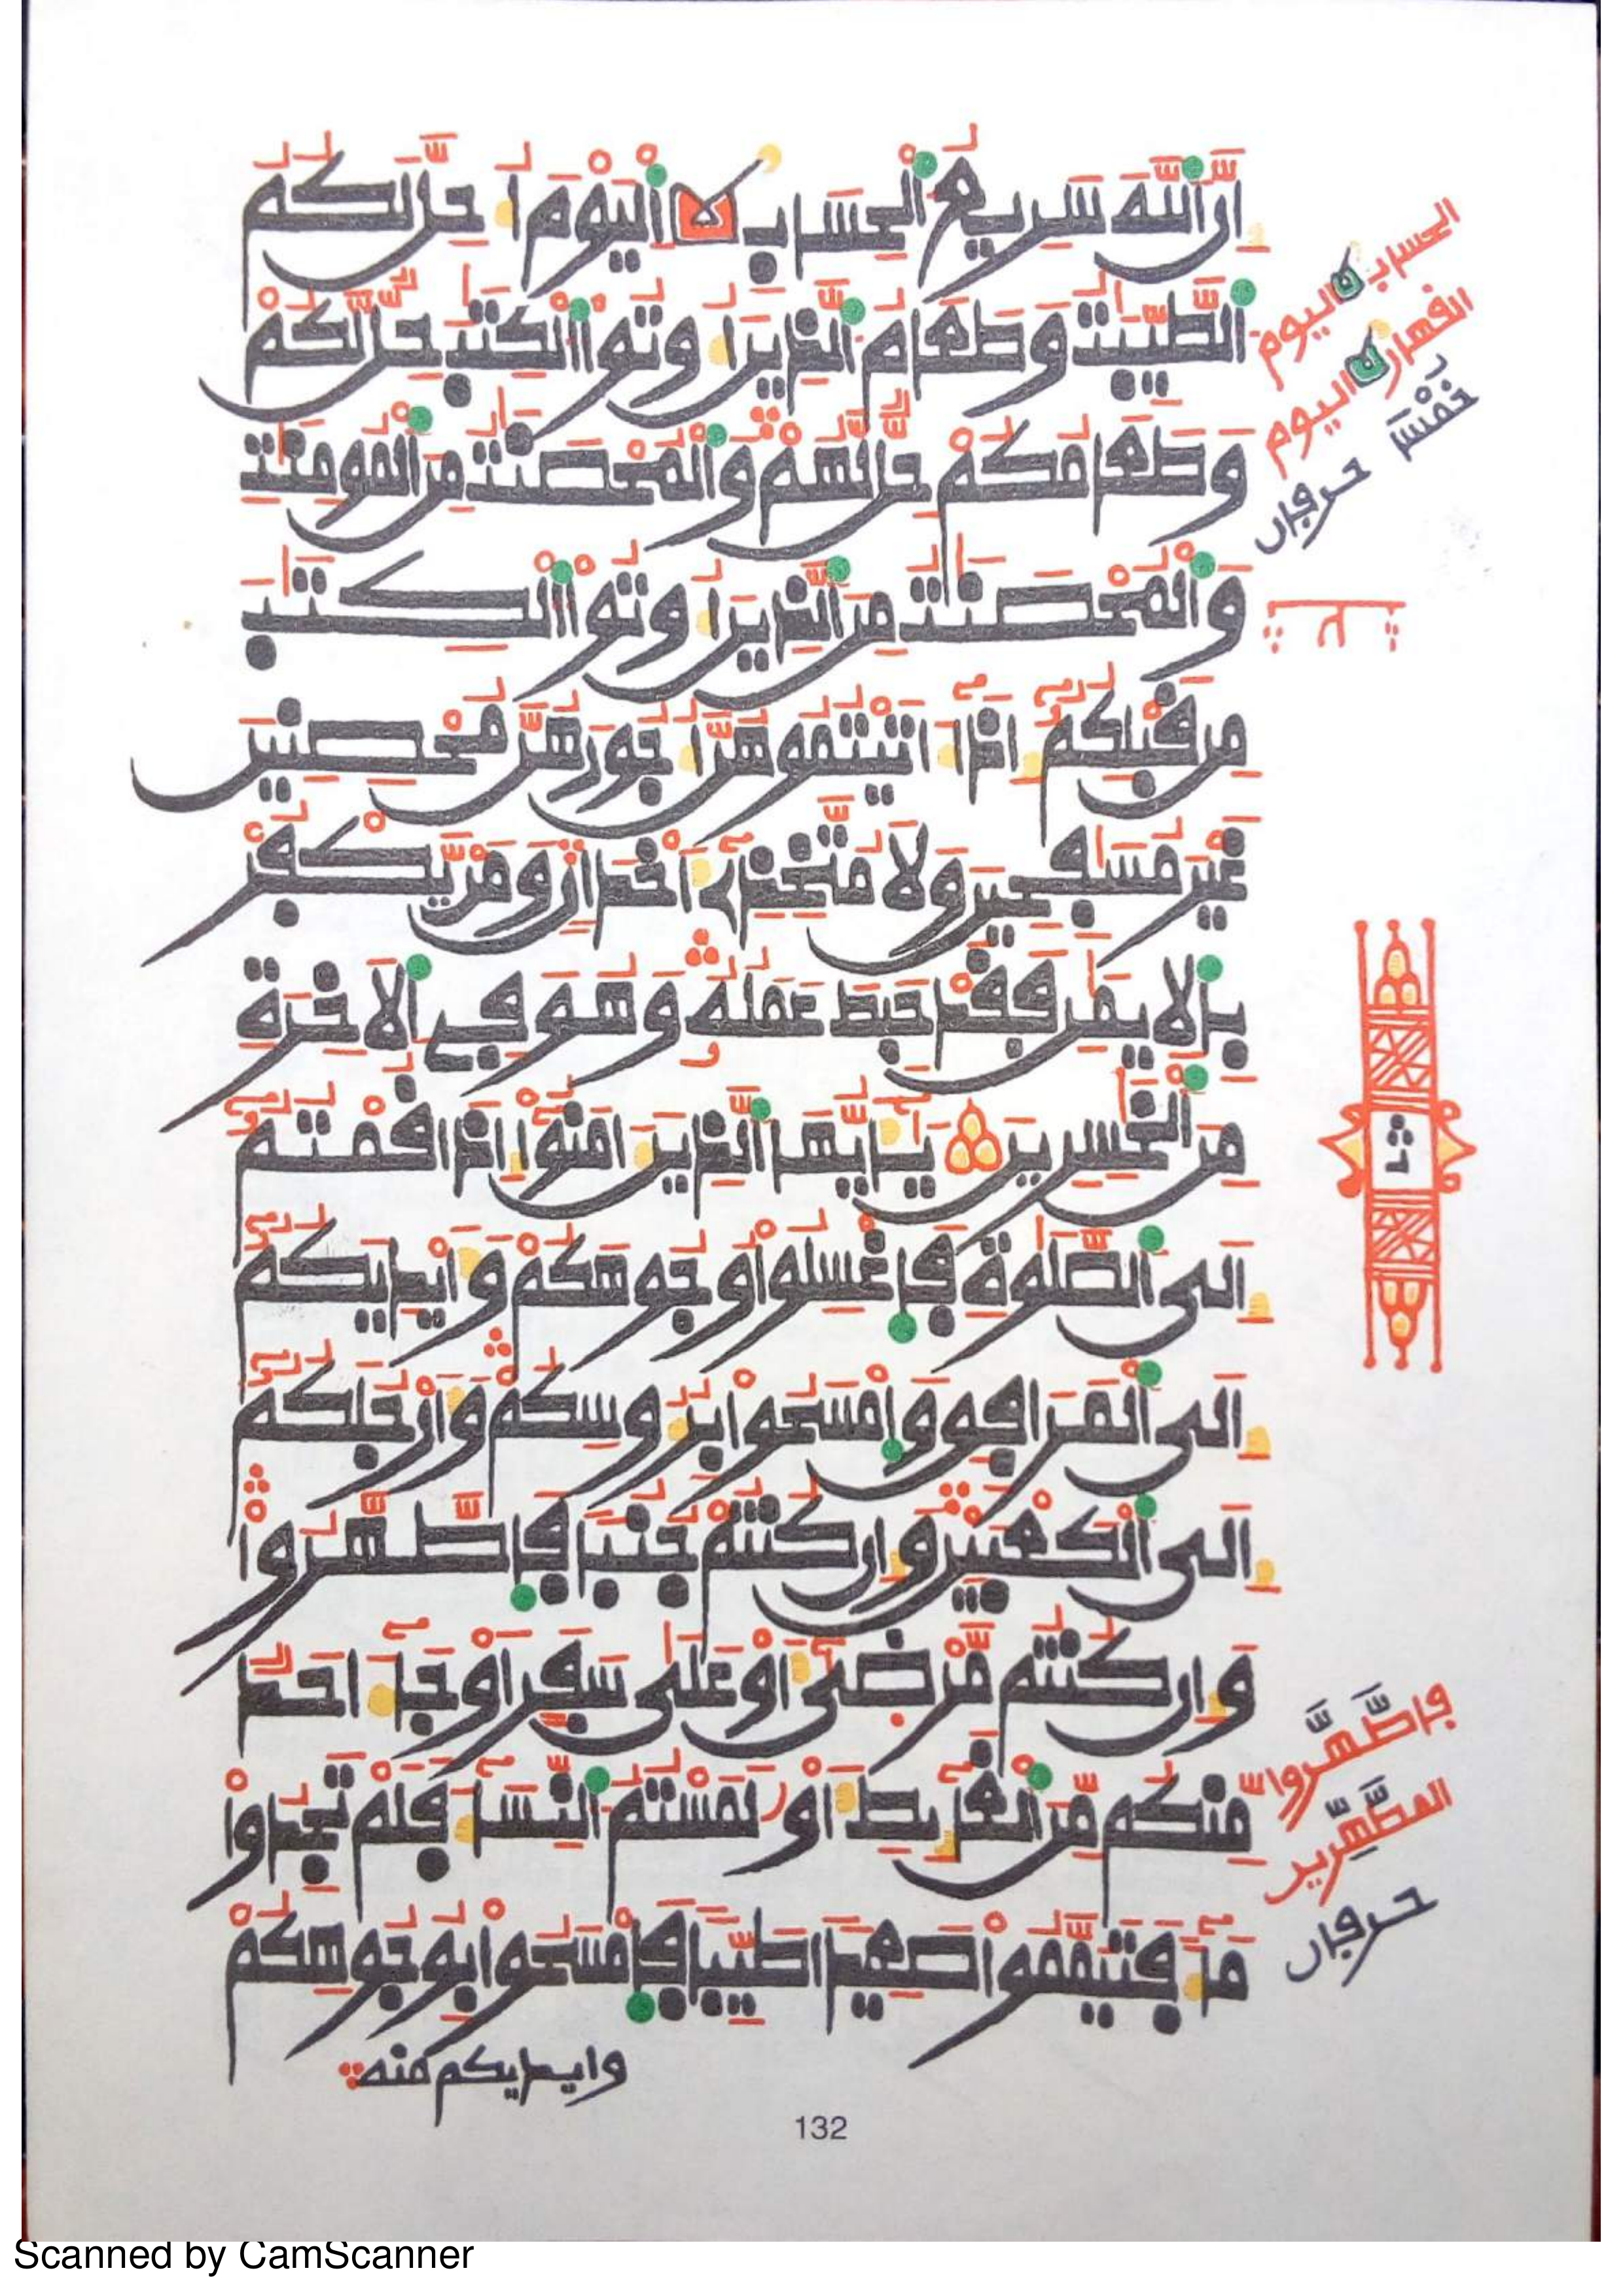 اِنَّ اَللَّهَ سَرِيعُ اَلْحِسَابِ اَلْيَوْمَ أُحِلَّ لَكُمُ
اَلطَّيِّبَٰتُ وَطَعَامُ اَلذِينَ أُوتُواْ اَلْكِتَٰبَ حِلٌّ لَّكُمْ
وَطَعَامُكُمْ حِلٌّ لَّهُمْ وَالْمُحْصَنَٰتُ مِنَ اَلْمُومِنَٰتِ
وَالْمُحْصَنَٰتُ مِنَ اَلذِينَ أُوتُواْ اَلْكِتَٰبَ
مِن قَبْلِكُمُ إِذَا ءَاتَيْتُمُوهُنَّ أُجُورَهُنَّ مُحْصِنِينَ
غَيْرَ مُسَٰفِحِينَ وَلَا مُتَّخِذِے أَخْدَانٍ وَمَن يَّكْفُرْ
بِالِايمَٰنِ فَقَدْ حَبِطَ عَمَلُهُ وَهُوَ فِے اِلَاخِرَةِ
مِنَ اَلْخَٰسِرِينَ يَٰأَيُّهَا اَلذِينَ ءَامَنُواْ إِذَا قُمْتُمُ
إِلَى اَلصَّلَوٰةِ فَاغْسِلُواْ وُجُوهَكُمْ وَأَيْدِيَكُمُ
إِلَى اَلْمَرَافِقِ وَامْسَحُواْ بِرُءُوسِكُمْ وَأَرْجُلَكُمُ
إِلَى اَلْكَعْبَيْنِ وَإِن كُنتُمْ جُنُبًا فَاطَّهَّرُواْ
وَإِن كُنتُم مَّرْضَىٰ أَوْ عَلَىٰ سَفَرٍ اَوْ جَآءَ احَدٌ
مِنكُم مِّنَ اَلْغَآئِطِ أَوْ لَٰمَسْتُمُ اُلنِّسَآءَ فَلَمْ تَجِدُواْ
مَآءً فَتَيَمَّمُواْ صَعِيدًا طَيِّبًا فَامْسَحُواْ بِوُجُوهِكُمْ
وايديكم منه
الحساب اليوم
اليوم
خَمْسَ
حرفان
فاطَّهَّروا
المطَّهِّرين
حرفان
132
Scanned by CamScanner